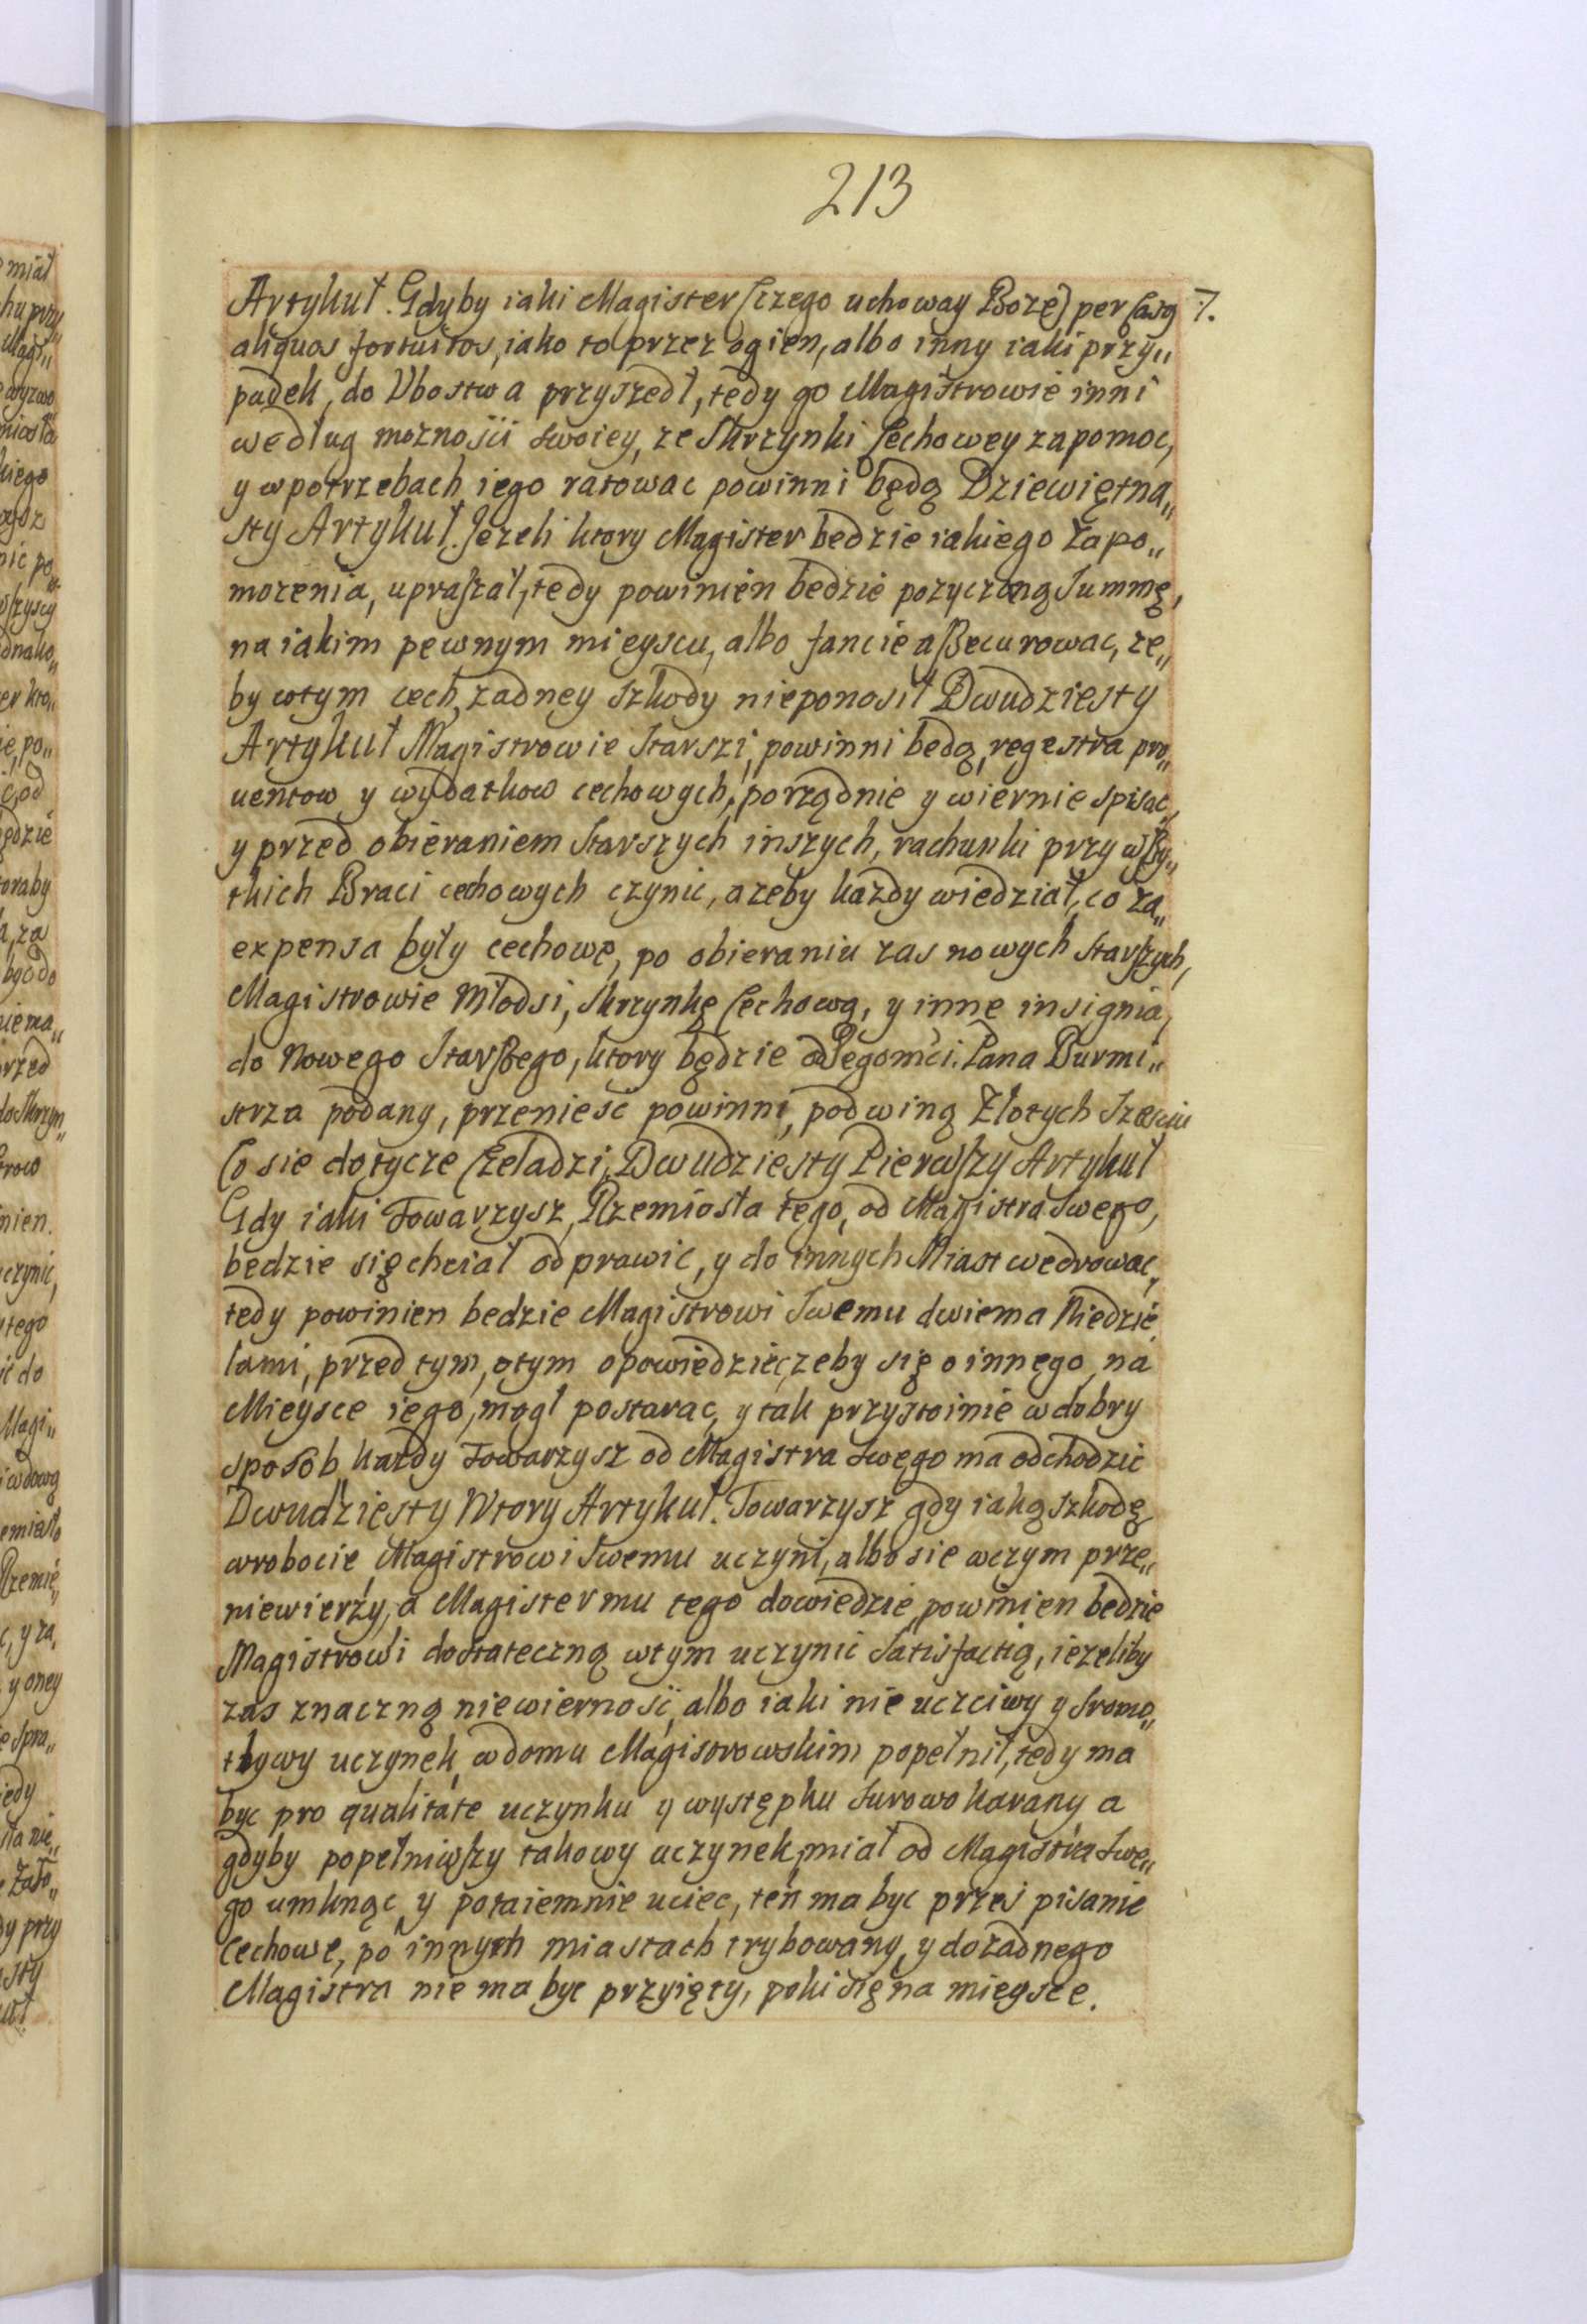 213
Artykuł. Gdyby iaki Magister (czego uchoway Boze) per Casg 7.
aliquos fortuitos, iako to przez ogien, albo inny iaki przy„
padek, do Vbostwa przyszedł, tedy go Magistrowie inni
według moznosci swoiey, ze Skrzynki Cechowey zapomoc,
y w potrzebach iego ratowac powinni będą Dziewiętna„
sty Artykuł. Jezeli ktory Magister bedzie iakiego Zapo„
mozenia, upraszał, tedy powinien bedzie pozyczoną Summę,
na iakim pewnym mieyscu, albo fancie aßecurowac, ze„
by wtym cech, zadney szkody nieponosił Dwudziesty
Artykuł Magistrowie Starszi, powinni bedą, regestra pro„
uentow y wydatkow cechowych, porządnie y wiernie spisac,
y przed obieraniem Starszych inszych, rachunki przy wßy„
tkich Braci cechowych czynic, azeby kazdy wiedział, co za„
expensa były cechowe, po obieraniu zas nowych Starszych,
Magistrowie Młodsi, Skrzynkę Cechową, y inne insignia,
do Nowego Starßego, ktory będzie od Jegomci. Pana Burmi„
strza podany, przeniesć powinni, pod winą Złotych Szesciu
Co sie dotycze Czeladzi, Dwudziesty Pierwszy Artykuł
Gdy iaki Towarzysz, Rzemiosła tego, od Magistra Swego,
bedzie się chciał odprawic, y do innych Miast wedrowac,
tedy powinien bedzie Magistrowi Swemu dwiema Niedzie
lami, przed tym, otym opowiedziec, zeby się o innego, na
Mieysce iego, mogł postarac, y tak przystoinie w dobry
sposob, kazdy Towarzysz od Magistra Swego ma odchodzic
Dwudziesty Wtory Artykuł. Towarzysz gdy iaką szkodę
wrobocie Magistrowi Swemu uczyni, albo sie wczym prze„
niewierzy, a Magister mu tego dowiedzie, powinien bedzie
Magistrowi dostateczną wtym uczynic Satisfactią, iezeliby
zas znaczną niewiernosć, albo iaki nie uczciwy y sromo„
tliwy uczynek, w domu Magistrowskim popełnił, tedy ma
byc pro qualitate uczynku y występku surowo karany a
gdyby popełniwszy takowy uczynek, miał od Magistra Swe„
go umknąc y potaiemnie uciec, ten ma byc przez pisanie
Cechowe, po innych miastach trybowany, y do zadnego
Magistra nie ma byc przyięty, poki się na mieysce.